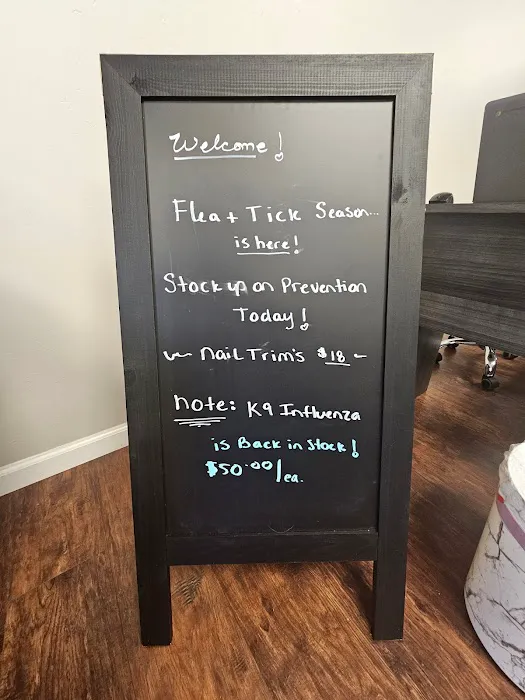 Welcome!
Flea + Tick Season...
is here!
Stock up on Prevention
Today!
~ Nail Trim's $18 ~
Note: K9 Influenza
is Back in Stock!
$50.00/ea.